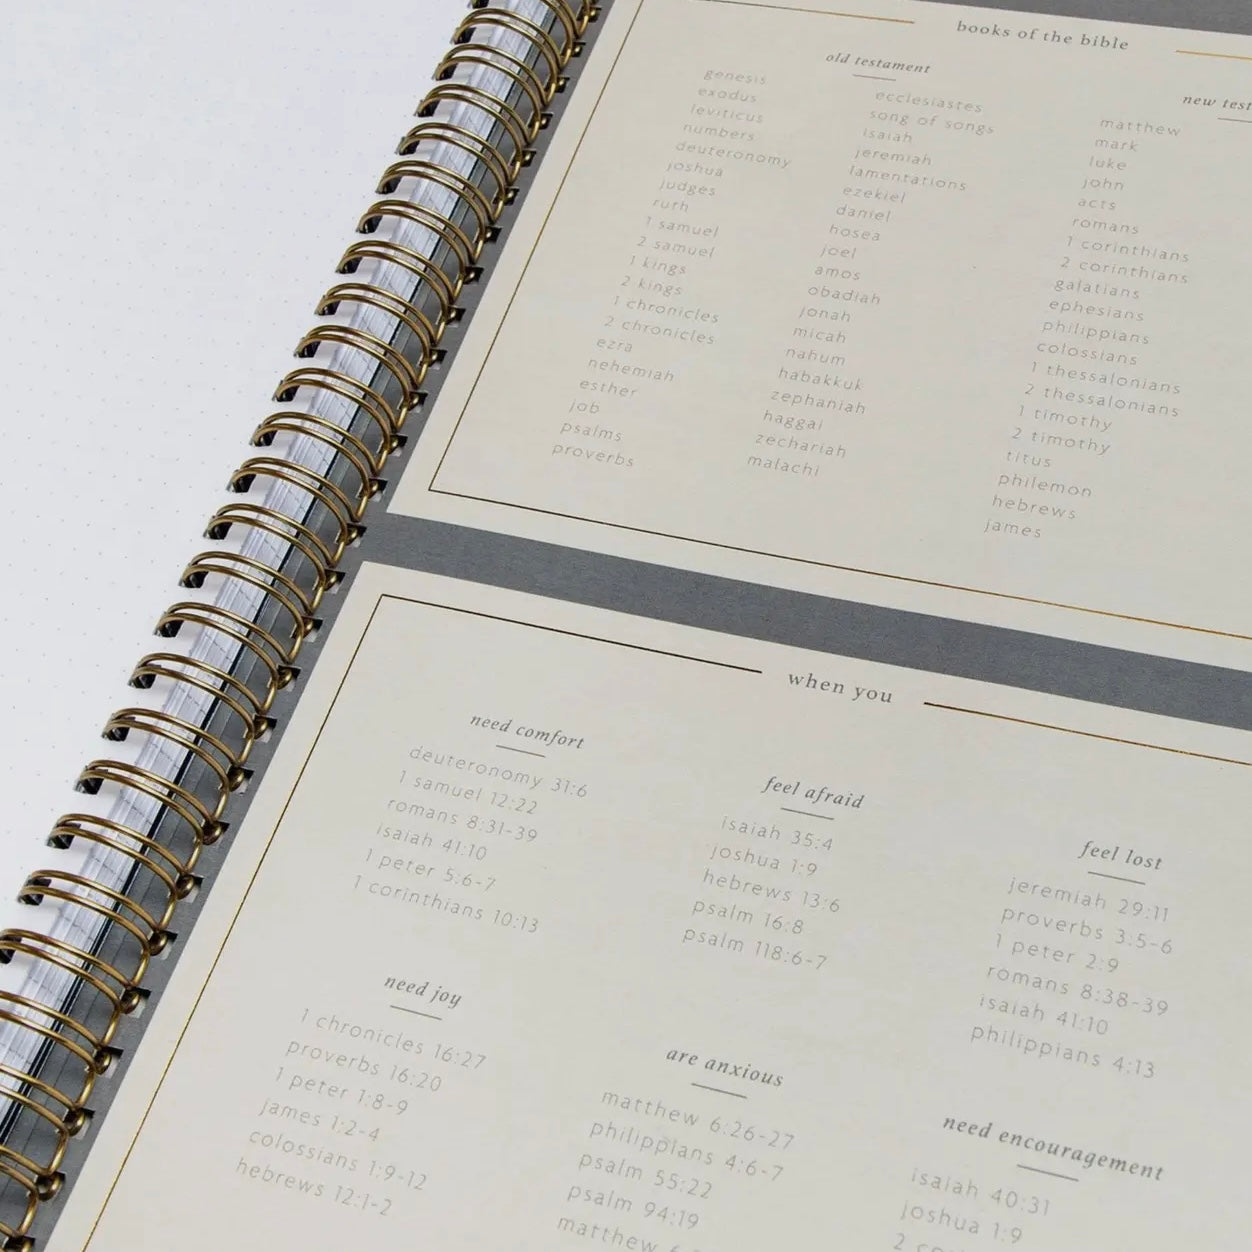 books of the bible
old testament
genesis
exodus
leviticus
numbers
deuteronomy
joshua
judges
ruth
1 samuel
2 samuel
1 kings
2 kings
1 chronicles
2 chronicles
ezra
nehemiah
esther
job
psalms
proverbs
ecclesiastes
song of songs
isaiah
jeremiah
lamentations
ezekiel
daniel
hosea
joel
amos
obadiah
jonah
micah
nahum
habakkuk
zephaniah
haggai
zechariah
malachi
new
matthew
mark
luke
john
acts
romans
1 corinthians
2 corinthians
galatians
ephesians
philippians
colossians
1 thessalonians
2 thessalonians
1 timothy
2 timothy
titus
philemon
hebrews
james
when you
need comfort
deuteronomy 31:6
1 samuel 12:22
romans 8:31-39
isaiah 41:10
1 peter 5:6-7
1 corinthians 10:13
feel afraid
isaiah 35:4
joshua 1:9
hebrews 13:6
psalm 16:8
psalm 118:6-7
feel lost
jeremiah 29:11
proverbs 3:5-6
1 peter 2:9
romans 8:38-39
isaiah 41:10
philippians 4:13
need joy
1 chronicles 16:27
proverbs 16:20
1 peter 1:8-9
james 1:2-4
colossians 1:9-12
hebrews 12:1-2
are anxious
matthew 6:26-27
philippians 4:6-7
psalm 55:22
psalm 94:19
matthew
need encouragement
isaiah 40:31
joshua 1:9
2